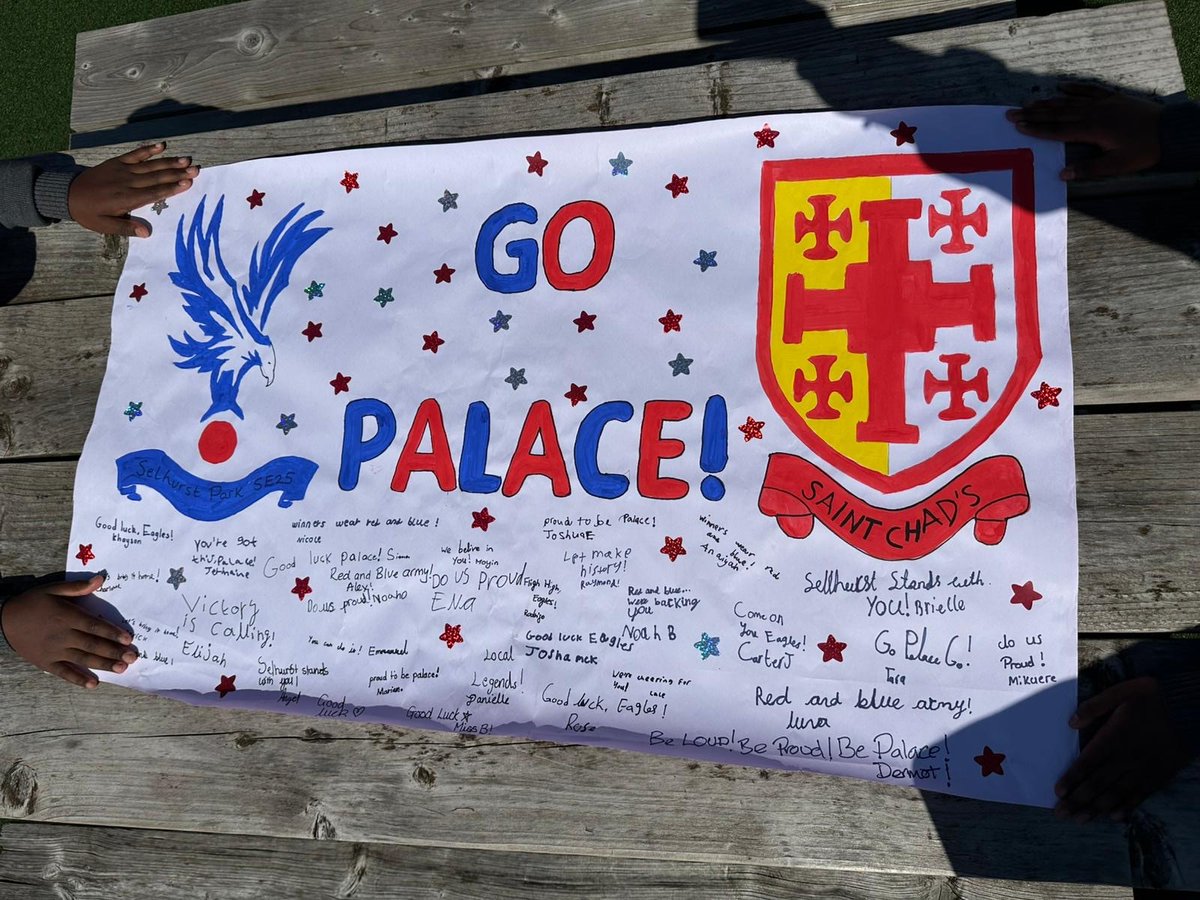 GO
PALACE!
Selhurst Park SE25
SAINT CHAD'S
Good luck, Eagles!
Khayson
winners wear red and blue!
nicole
proud to be Palace!
Joshua
winners
wear red
and blue!
Anaiyah
you're got
this, Palace!
Good luck palace!
We belive in
you! Moyin
Let make
history!
Raymond!
Red and Blue army!
Alex!
Do us Proud
Ena
Do us proud! Noah
Fligh High,
Eagles!
Rodrigo
Red and blue...
were backing
you
Noah B
Sellhurst Stands with
YOU! Brielle
Victory
is calling!
Elijah
Come on
you Eagles!
Carter J
Go Palace Go!
Tara
do us
Proud!
Mikuere
You can do it! Emmanuel
Good luck Eagles
Josh
Selhurst stands
with you!
Angel
proud to be palace!
Local
Legends!
Danielle
were cheering for
you!
Good
luck
Good Luck
Miss B!
Good luck, Eagles!
Rose
Red and blue army!
luna
Be LOUD! Be Proud! Be Palace!
Dermot!